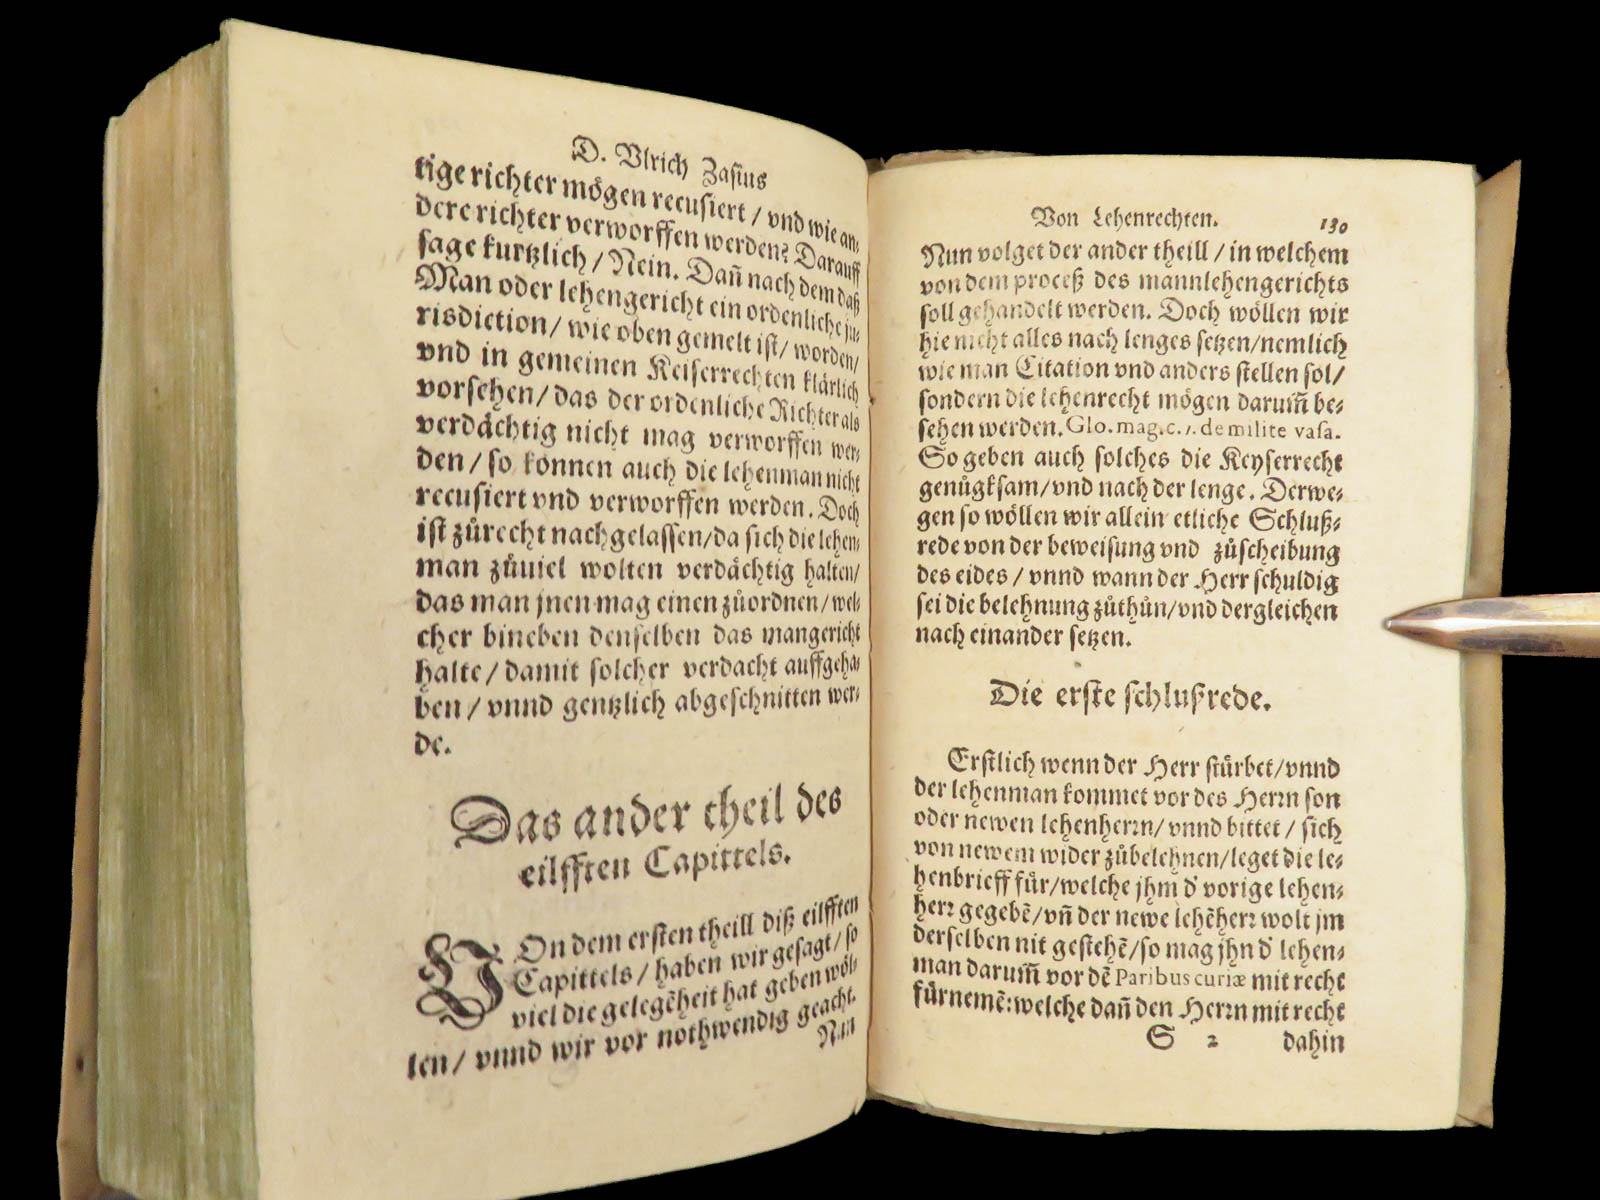 D. Vlrich Zasius
tige richter mögen recusiert / vnd wie an⸗
dere richter verworffen werden? Darauff
sage kurtzlich / Nein. Dañ nach dem daß
Man oder lehengericht ein ordenliche ju⸗
risdiction / wie oben gemelt ist / worden /
vnd in gemeinen Keiserrechten klärlich
vorsehen / das der ordenliche Richter als
verdächtig nicht mag verworffen wer⸗
den / so können auch die lehenman nicht
recusiert vnd verworffen werden. Doch
ist zůrecht nachgelassen / da sich die lehen⸗
man zůuiel wolten verdächtig halten /
das man jnen mag einen zůordnen / wel⸗
cher bineben denselben das mangericht
halte / damit solcher verdacht auffgeha⸗
ben / vnnd gentzlich abgeschnitten wer⸗
de.
Das ander theil des
eilfften Capittels.
VOn dem ersten theill diß eilfften
Capittels / haben wir gesagt / so
viel die gelegēheit hat geben wöl⸗
len / vnnd wir vor nothwendig geacht.
Nun
Von Lehenrechten. 130
Nun volget der ander theill / in welchem
von dem proceß des mannlehengerichts
soll gehandelt werden. Doch wöllen wir
hie nicht alles nach lenges setzen / nemlich
wie man Citation vnd anders stellen sol /
sondern die lehenrecht mögen darum̃ be⸗
sehen werden. Glo. mag. c. 1. de milite vasa.
So geben auch solches die Keyserrecht
genůgksam / vnd nach der lenge. Derwe⸗
gen so wöllen wir allein etliche Schluß⸗
rede von der beweisung vnd zůscheibung
des eides / vnnd wann der Herr schuldig
sei die belehnung zůthůn / vnd dergleichen
nach einander setzen.
Die erste schlußrede.
Erstlich wenn der Herr stürbet / vnnd
der lehenman kommet vor des Herrn son
oder newen lehenherrn / vnnd bittet / sich
von newem wider zůbelehnen / leget die le⸗
henbrieff für / welche jhm d' vorige lehen⸗
herr gegebē / vñ der newe lehēherr wolt jm
derselben nit gestehē / so mag jhn d' lehen⸗
man darum̃ vor dē Paribus curiæ mit recht
fürnemē: welche dañ den Herrn mit recht
S 2 dahin